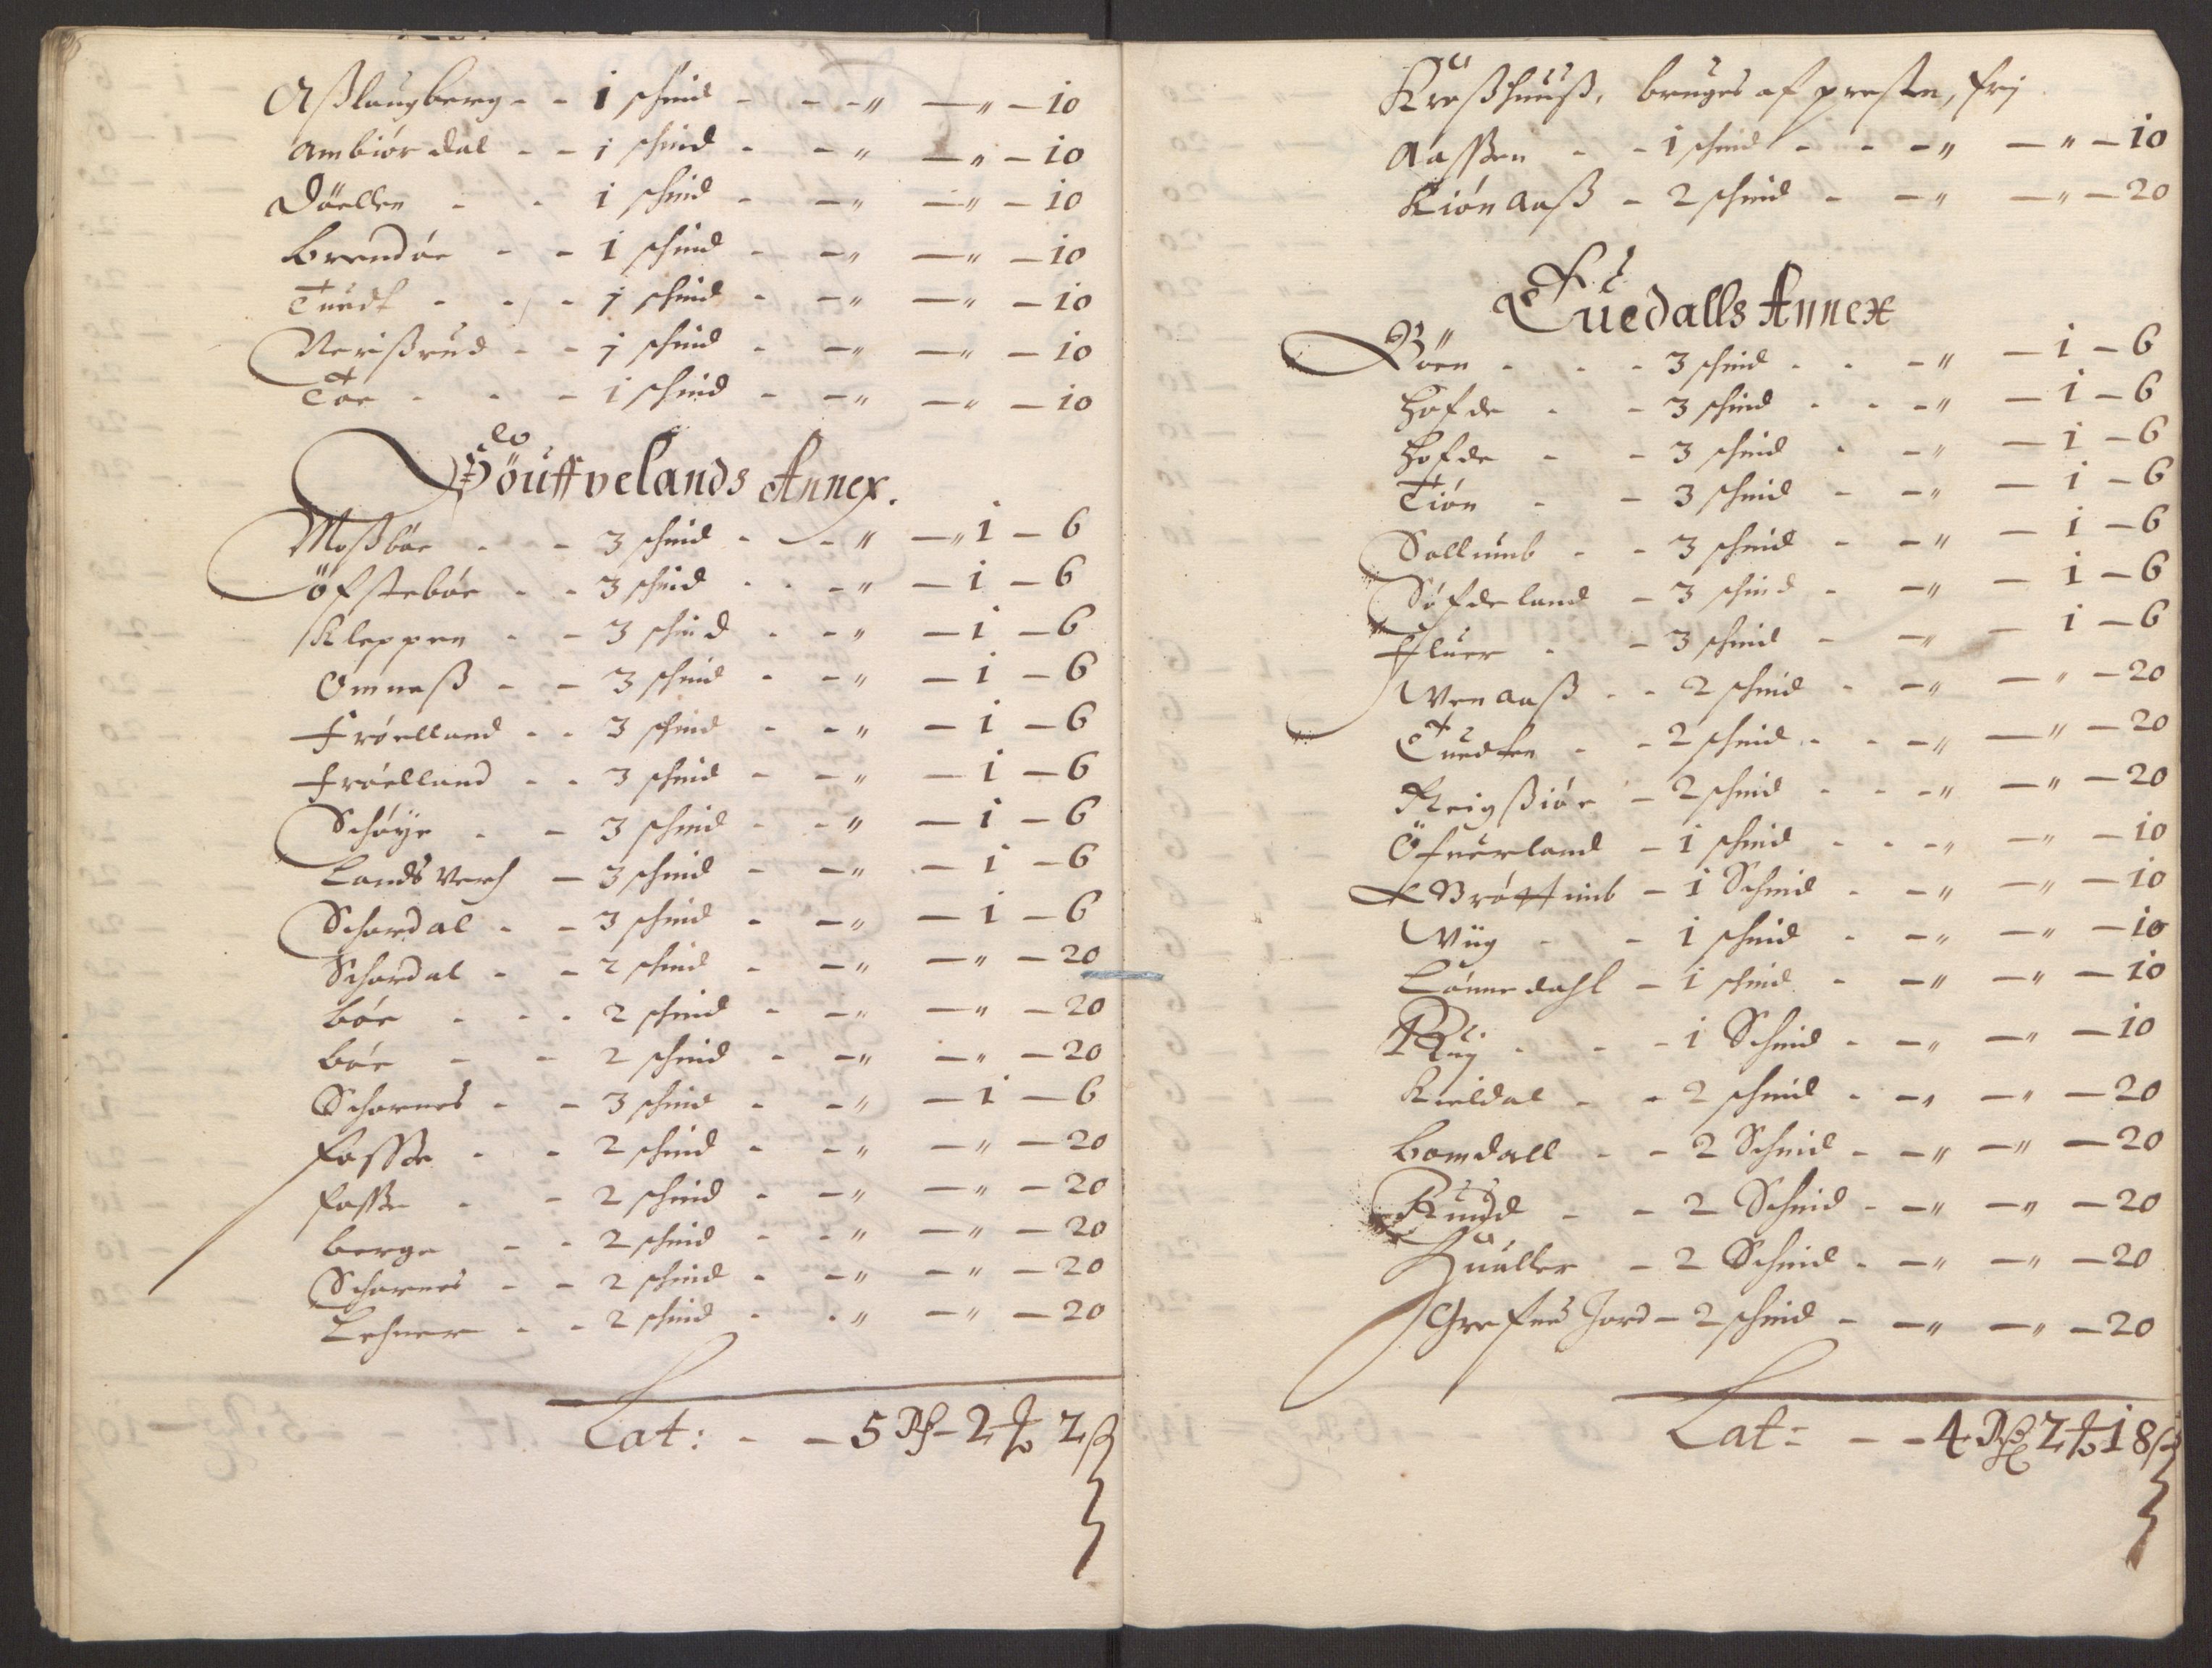 Aßlaugberg - - 1 schind - - - " — " — 10
Ambiørdal - - 1 schind - - " — " — 10
Döellen - - 1 schind - - " — " — 10
Brendøe - - 1 schind - - " — " — 10
Tuedt - - - 1 schind - - " — " — 10
Nerißrud - - 1 schind - - " — " — 10
Toe - - - 1 schind - - " — " — 10
Höuffvelands Annex.
Moßbøe - - - 3 schind - - - " — " 1 — 6
Öfstebøe - - 3 schind - - - " — 1 — 6
Kleppen - - 3 schind - - " — 1 — 6
Omneß - - 3 schind - - " — 1 — 6
Frøelland - - 3 schind - - " — 1 — 6
Frøelland - - 3 schind - - " — 1 — 6
Schøye - - 3 schind - - " — 1 — 6
Landsverch — 3 schind - - " - 1 — 6
Schordal - - 3 schind - - " — 1 — 6
Schordal - - 2 schind - - " — " — 20
Bøe - - - 2 schind - - " — " — 20
Bøe - - 2 schind - - " — " — 20
Schornes - - 3 schind - - " — 1 — 6
Fosse - - 2 schind - - " — " — 20
Fosse - - 2 schind - - " — " — 20
Berge - - 2 schind - - " — " — 20
Schornes - - 2 schind - - " — " — 20
Lehner - - 2 schind - - " — " — 20
Lat: - - 5 Rd - 2 ort 2 ß
Kroßhuuß, bruges af presten, frj
Aaßen - - 1 schind - - - " — " — 10
Kiønaaß - 2 schind - - " — " — 20
Tuedalls Annex
Bøen - - - 3 schind - - - " — 1 — 6
Hofde - - 3 schind - - - " — 1 — 6
Hofde - - 3 schind - - " — 1 — 6
Tiøn - - 3 schind - - " — 1 — 6
Sollumb - - 3 schind - - " — 1 — 6
Søfdeland - 3 schind - - " — 1 — 6
Fluer - - 3 schind - - " — 1 — 6
Wenaaß - - 2 schind - - " — " — 20
Tuedten - - 2 schind - - - " — " — 20
Reigßiøe - 2 schind - - - " — " — 20
Öfuerland - 1 schind - - - " — " — 10
Brøttumb - 1 Schind - - " — " — 10
Wüg - - 1 schind - - " — " — 10
Lønnedahl - 1 schind - - " — " — 10
Ruj - - - 1 Schind - - " — " — 10
Kieldal - - 2 schind - - " — " — 20
Bomdall - - 2 Schind - - " — " — 20
Ruud - - 2 Schind - - " — " — 20
Huäller - 2 Schind - - " — " — 20
Grefues Jord - 2 schind - - " — " — 20
Lat: - - 4 Rd 2 ort 18 ß